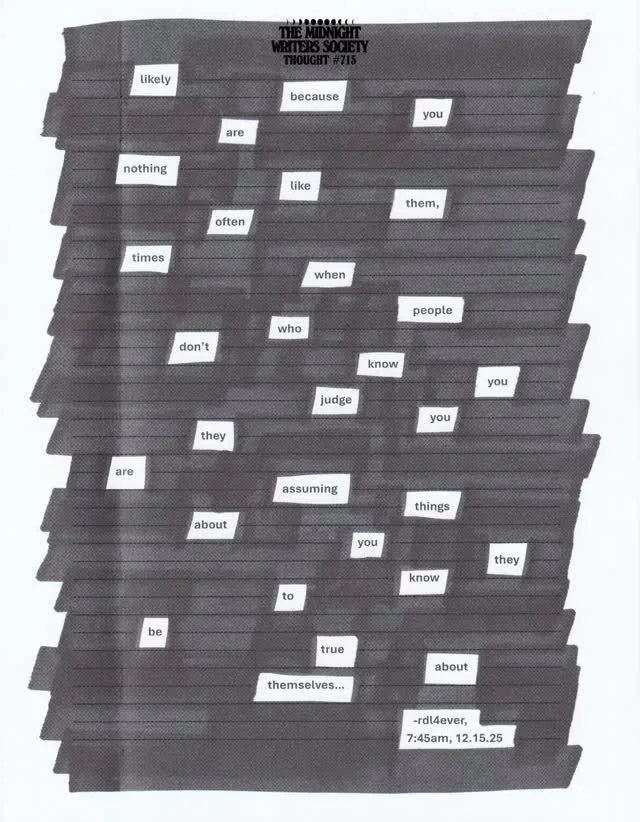 THE MIDNIGHT
WRITERS SOCIETY
THOUGHT #715
likely
because
you
are
nothing
like
them,
often
times
when
people
who
don't
know
you
judge
you
they
are
assuming
things
about
you
they
know
to
be
true
about
themselves...
-rdl4ever,
7:45am, 12.15.25